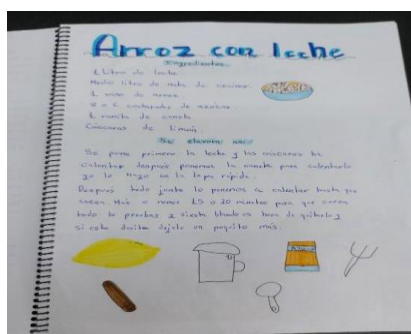 Arroz con leche
Ingredientes
1 Litro de leche.
Medio litro de nata de cocinar.
1 vaso de arroz.
cucharadas de azúcar.
1 ramita de canela
Cáscaras de limón.
Se elabora así
Se pone primero la leche y las cáscaras ha
calentar después ponemos la canela para calentarlo
yo lo hago en la
Después todo junto lo ponemos a calentar hasta que
cueza. Más o menos 15 o 20 minutos para que
todo lo pruebas y si esta blando es hora de quitarlo y
si esta durito dejelo un poquito más.